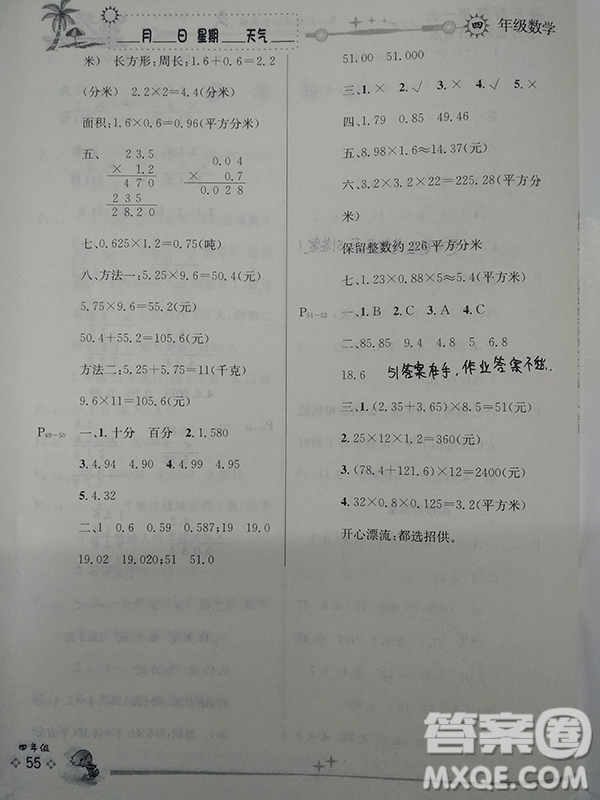 月 日 星期 天气
四 年级数学
米) 长方形:周长:1.6+0.6=2.2
(分米) 2.2×2=4.4(分米)
面积:1.6×0.6=0.96(平方分米)
五、 2 3.5 0.0 4
× 1.2 × 0.7
4 7 0 0.0 2 8
2 3 5
2 8.2 0
七、0.625×1.2=0.75(吨)
八、方法一:5.25×9.6=50.4(元)
5.75×9.6=55.2(元)
50.4+55.2=105.6(元)
方法二:5.25+5.75=11(千克)
9.6×11=105.6(元)
P49-50 一、1.十分 百分 2.1.580
3.4.94 4.96 4.4.99 4.95
5.4.32
二、1 0.6 0.59 0.587;19 19.0
19.02 19.020;51 51.0
51.00 51.000
三、1.× 2.√ 3.√ 4.× 5.×
四、1.79 0.85 49.46
五、8.98×1.6≈14.37(元)
六、3.2×3.2×22=225.28(平方分
米)
保留整数约226平方分米
七、1.23×0.88×5≈5.4(平方米)
P51-52 一、1.B 2.C 3.A 4.C
二、85.85 9.4 4.8 5 6.8
18.6 51答案在手,作业答案不愁.
三、1.(2.35+3.65)×8.5=51(元)
2.25×12×1.2=360(元)
3.(78.4+121.6)×12=2400(元)
4.32×0.8×0.125=3.2(平方米)
开心漂流:都选招供。
四年级
55
答案圈
MXQE.COM